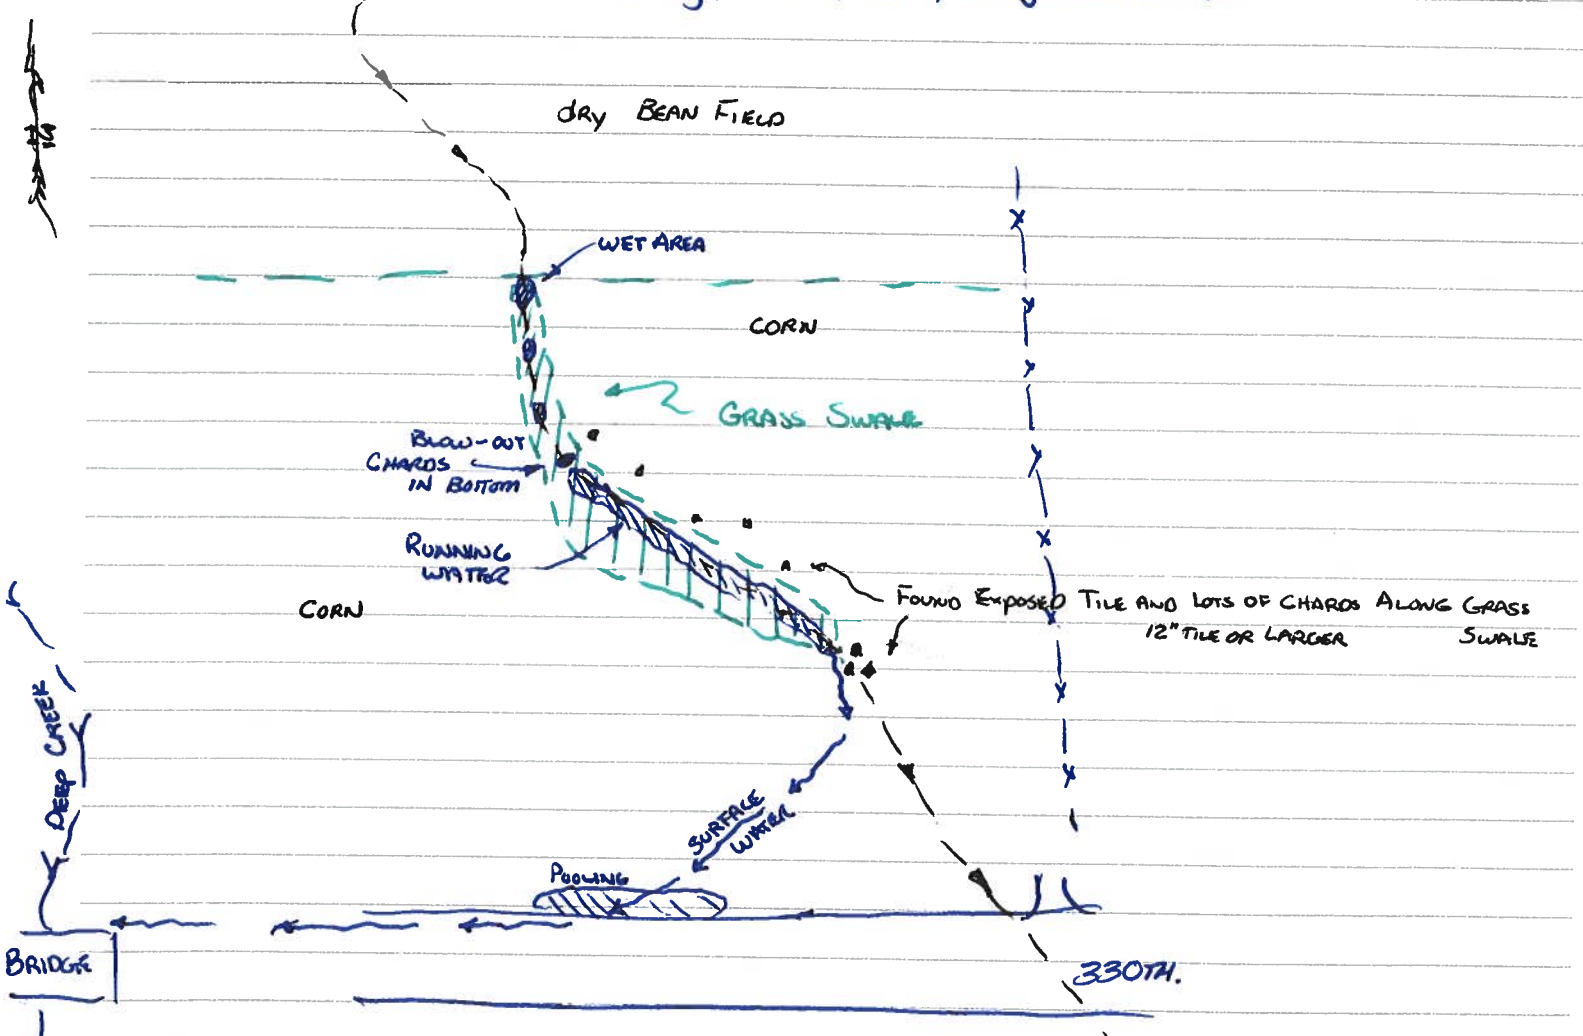 N
dRy BEAN FIELD
WET AREA
CORN
GRASS SWALE
BLOW-OUT
CHARDS
IN BOTTOM
RUNNING
WATER
CORN
FOUND EXPOSED TILE AND LOTS OF CHARDS ALONG GRASS
12" TILE OR LARGER SWALE
DEEP CREEK
SURFACE
WATER
POOLING
BRIDGE
330TH.